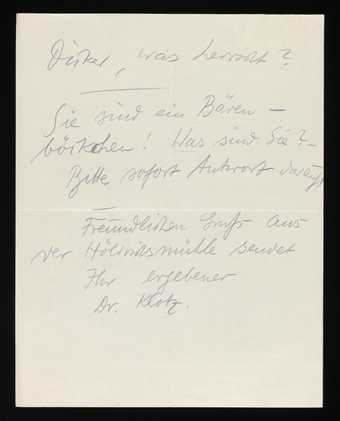 , was herrscht?
Sie sind ein Bären –
! Was sind Sie? –
Bitte sofort Antwort darauf!
Freundlichen Gruß aus
der Höldrichsmühle sendet
Ihr ergebener
Dr. Klotz.